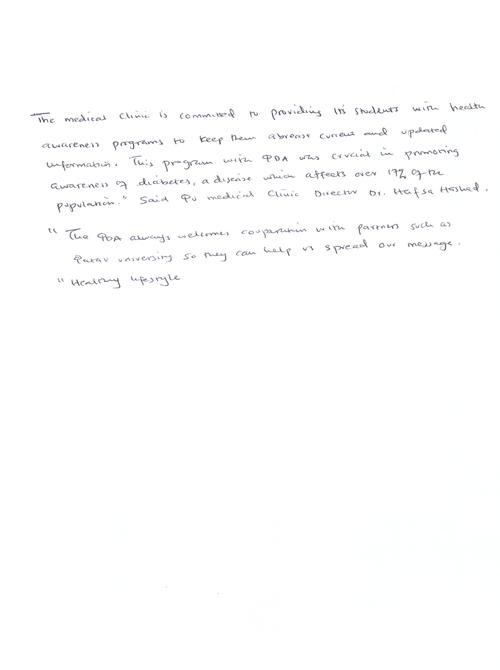 The medical Clinic is committed to providing its students with health
awareness programs to keep them abreast current and updated
information. This program with QDA was crucial in promoting
awareness of diabetes, a disease which affects over 17% of the
population." Said QU medical Clinic Director Dr. Hafsa Hashad.
" The QDA always welcomes cooperation with partners such as
Qatar university so they can help us spread our message.
" Healthy lifestyle